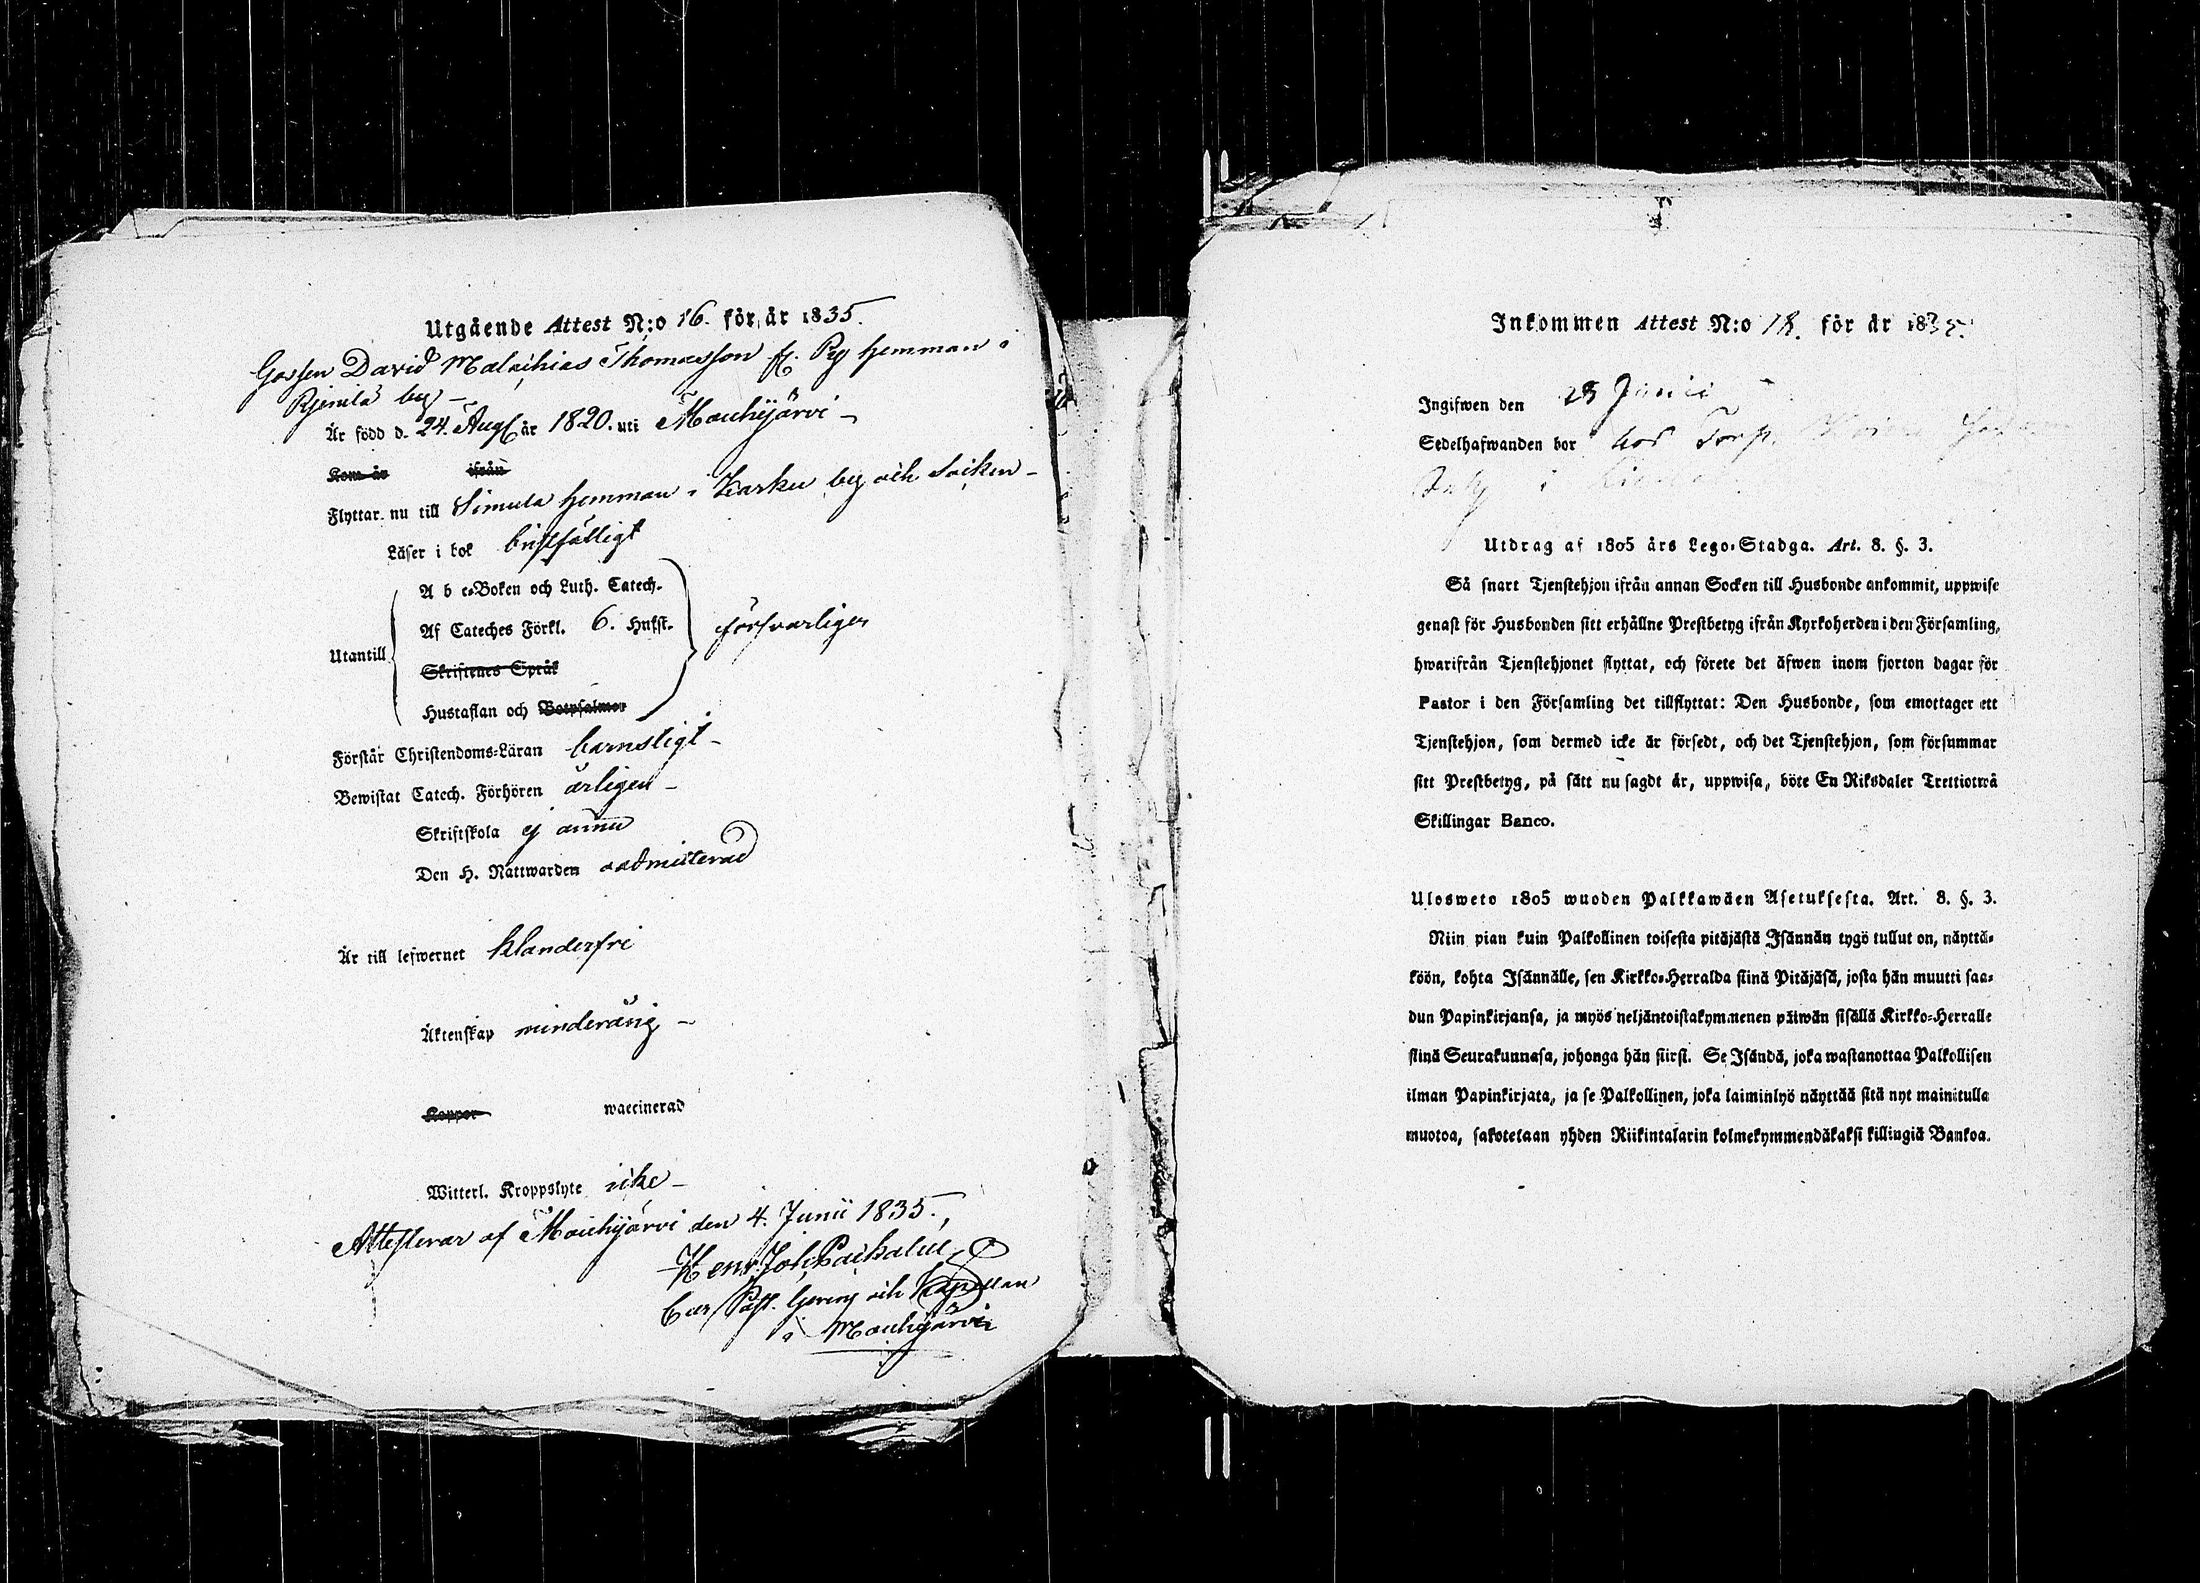 Utgående Attest N:o 16. för år 1835.
Gossen David Malachias Thomasson fr. Py hemman i
by –
Är född d. 24. Aug. år 1820. uti Mouhijärvi –
Kom år ifrån
Flyttar nu till Simula hemman i Karku by och Socken –
Läser i bok bristfälligt
A b c-Boken och Luth. Catech.
Af Cateches Förkl. 6. Hufst.
Utantill försvarligen
Skriftenes Språk
Hustaflan och Botpsalmer
Förstår Christendoms-Läran barnsligt –
Bewistat Catech. Förhören årligen –
Skriftskola ej ännu
Den H. Nattwarden oadmitterad
Är till lefwernet klanderfri
Äktenskap minderårig –
Koppor waccinerad
Witterl. Kroppslyte icke –
Attesterar af Mouhijärvi den 4. Junii 1835.
Henr. Joh.
Past. och Kapellan
i Mouhijärvi
Inkommen Attest N:o 18. för år 1835.
Ingifwen den 28 Junii
Sedelhafwanden bor hos Torp.
i
Utdrag af 1805 års Lego-Stadga. Art. 8. §. 3.
Så snart Tjenstehjon ifrån annan Socken till Husbonde ankommit, uppwise
genast för Husbonden sitt erhållne Prestbetyg ifrån Kyrkoherden i den Församling,
hwarifrån Tjenstehjonet flyttat, och förete det äfwen inom fjorton dagar för
Pastor i den Församling det tillflyttat: Den Husbonde, som emottager ett
Tjenstehjon, som dermed icke är försedt, och det Tjenstehjon, som försummar
sitt Prestbetyg, på sätt nu sagdt är, uppwisa, böte En Riksdaler Trettiotwå
Skillingar Banco.
Ulosweto 1805 wuoden Palkkawäen Asetuksesta. Art. 8. §. 3.
Niin pian kuin Palkollinen toisesta pitäjästä Isännän tygö tullut on, näyttä-
köön, kohta Isännälle, sen Kirkko-Herralda siinä Pitäjäsä, josta hän muutti saa-
dun Papinkirjansa, ja myös neljäntoistakymmenen päiwän sisällä Kirkko-Herralle
siinä Seurakunnasa, johonga hän siirsi. Se Isändä, joka wastanottaa Palkollisen
ilman Papinkirjata, ja se Palkollinen, joka laiminlyö näyttää sitä nyt mainitulla
muotoa, sakotetaan yhden Riikintalarin kolmekymmendäkaksi killingiä Bankoa.